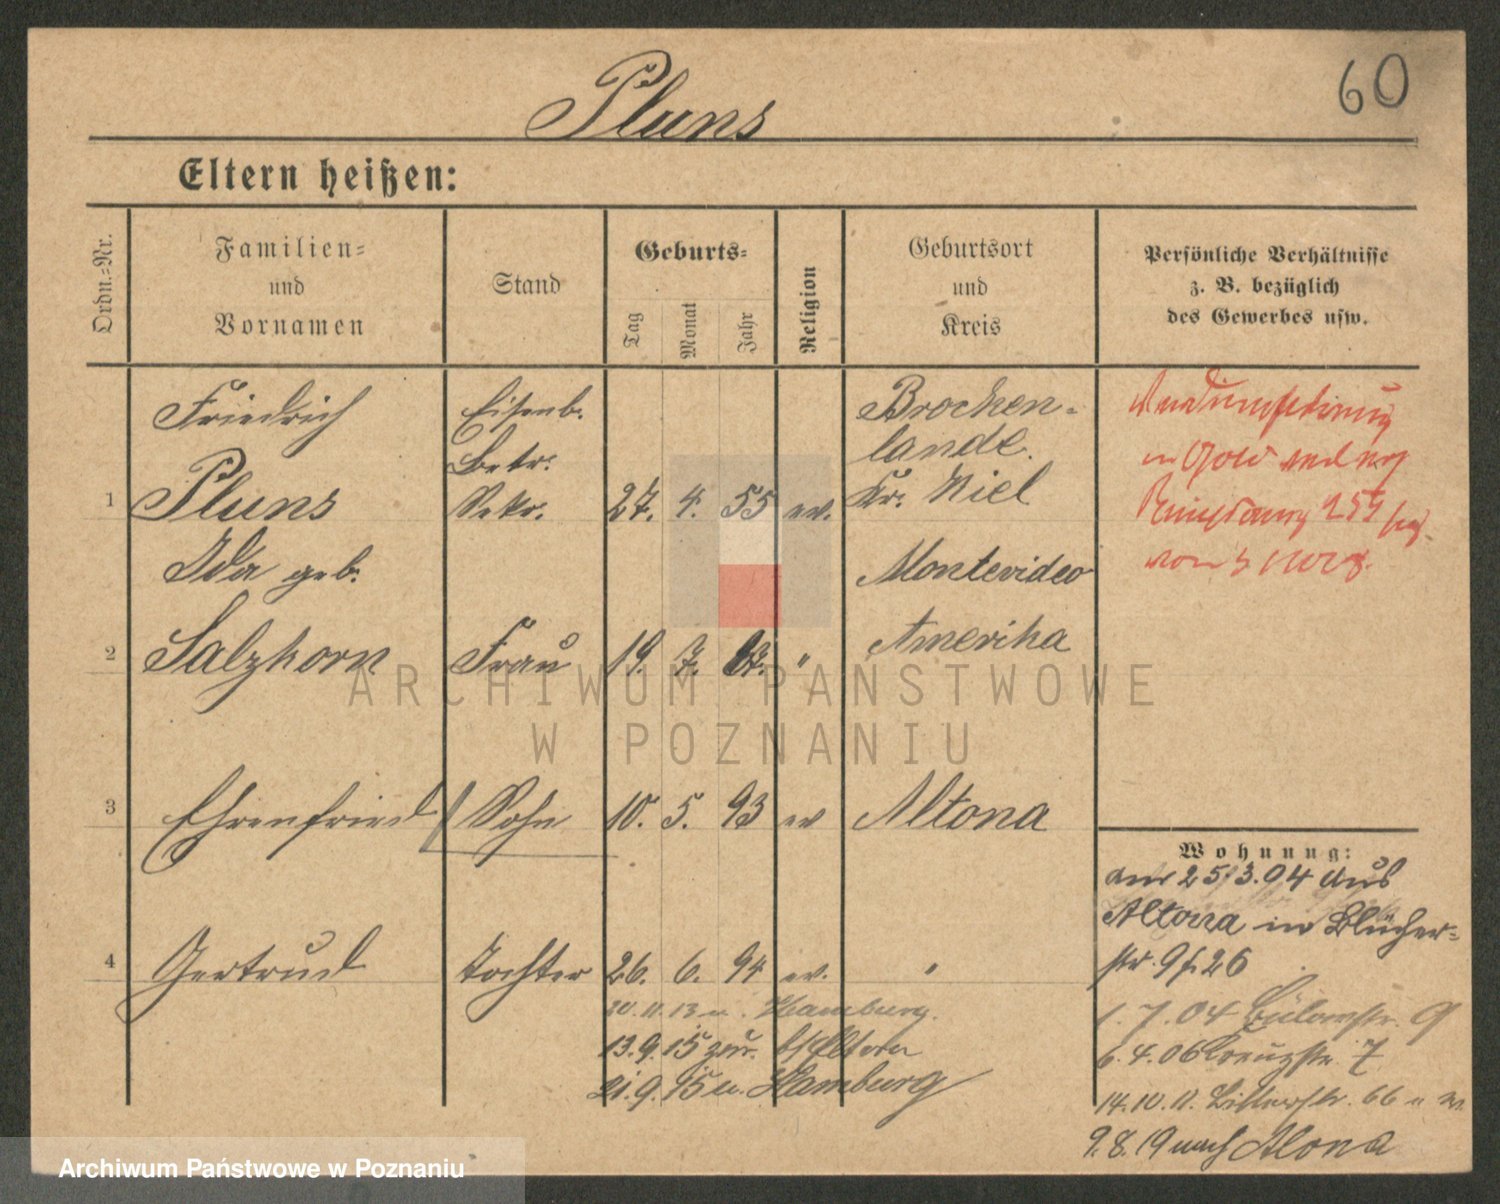 60
Pluns
Eltern heißen:
Ordn.-Nr.
Familien-
und
Vornamen
Stand
Geburts-
Tag
Monat
Jahr
Religion
Geburtsort
und
Kreis
Persönliche Verhältnisse
z. B. bezüglich
des Gewerbes usw.
Friedrich Eisenb. Brocken-
Betr. lande.
1 Pluns Sekr. 27. 4. 55 ev. Kr. Kiel
Ida geb. Montevideo
2 Salzkorn Frau 19. 7. " Amerika
3 Ehrenfried Sohn 10. 5. 93 ev Altona
4 Gertrud Tochter 26. 6. 94 ev. "
20. 11. 13 u. Hamburg.
13. 9. 15 zur. Eltern
21. 9. 15 u. Hamburg
in Gold
259
von
Wohnung:
am 25/3.04 aus
Altona in Blücher-
str. 9 26
1. 7. 04 Bülowstr. 9
6. 4. 06 Kreuzstr. 7
14. 10. 11. 66
9. 8. 19 nach Altona
ARCHIWUM PAŃSTWOWE
W POZNANIU
Archiwum Państwowe w Poznaniu